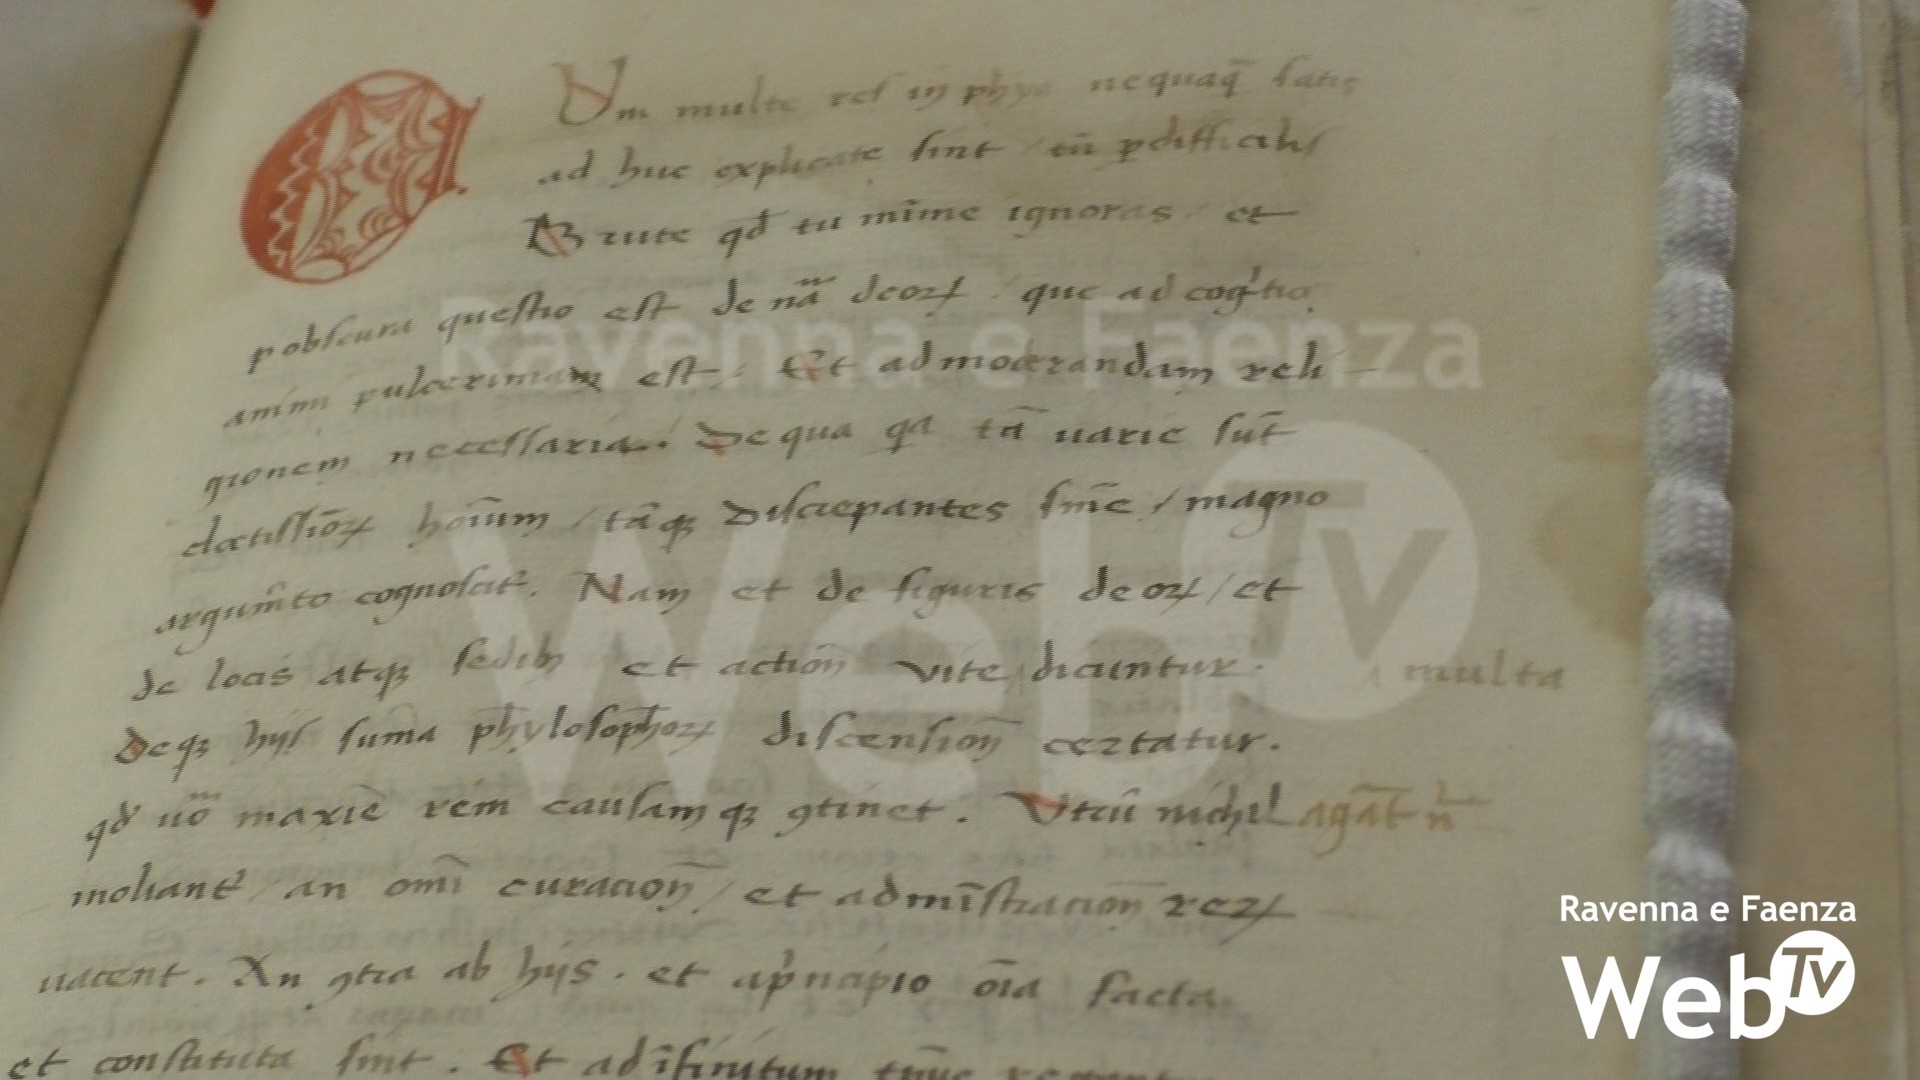 CUm multe res in phya nequaq̄ satis
ad huc explicate sint / tū ꝑdifficilis
Brute qđ tu mīme ignoras / et
pobscura questio est de nā deoꝝ / que ad cog̓tio
animi pulcerimam est / Et ad moderandam reli-
gionem necessaria. De qua qa tā uarie sūt
doctissioꝝ hoīum / tāqꝫ discrepantes sn̄ie / magno
argum̄to cognoscit᷑. Nam et de figuris deoꝝ / et
de locis atqꝫ sedibꝫ et action̄ vite dicuntur. multa
deqꝫ hijs suma phylosophoꝝ discension̄ certatur.
qđ uō maxiē rem causamqꝫ ꝯtinet. Utrū nichil agāt n̄
moliant᷑ / an omī curacion̄ / et admīstracion̄ reꝝ
uacent. An ꝯtra ab hijs. et ap̓ncipio oīa facta
et constituta sint. Et ad īfinitum
Ravenna e Faenza
WebTv
Ravenna e Faenza
WebTv